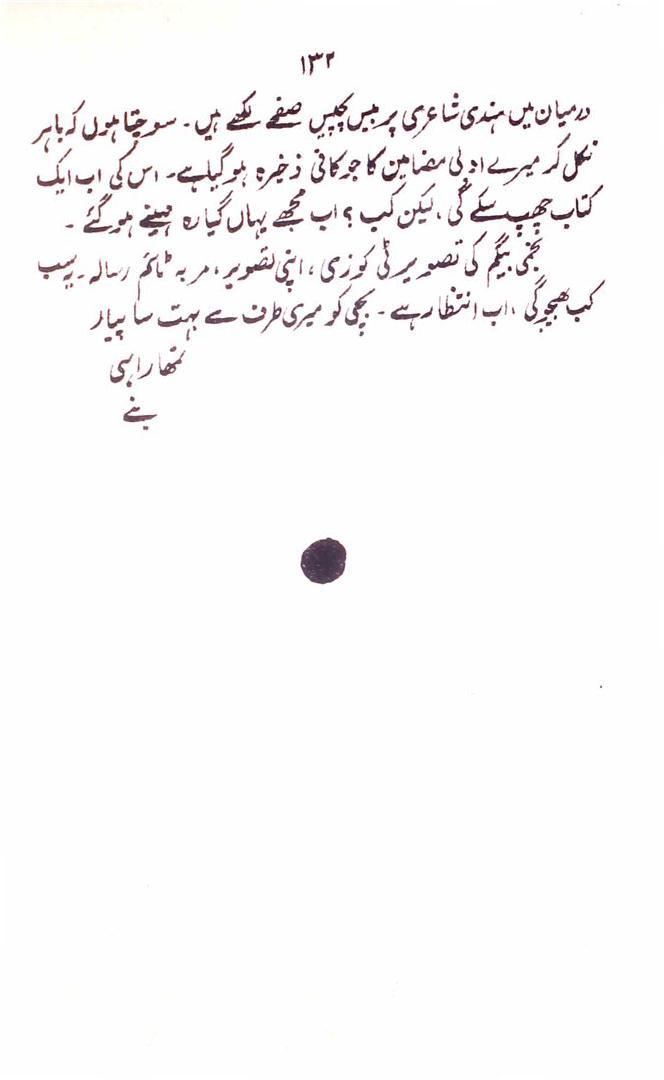 ۱۳۲
درمیان میں ہندی شاعری پر بیس پچیس صفحے لکھے ہیں۔ سوچتا ہوں کہ باہر
نکل کر میرے ادبی مضامین کا جو کافی ذخیرہ ہو گیا ہے۔ اس کی اب ایک
کتاب چھپ سکے گی، لیکن کب؟ اب مجھے یہاں گیارہ مہینے ہو گئے۔
نجمی بیگم کی تصویر ٹی کوزی، اپنی تصویر، مربہ ٹائم رسالہ۔ یہ سب
کب بھیجو گی، اب انتظار ہے۔ بچی کو میری طرف سے بہت سا پیار
تمھارا ہی
بنے